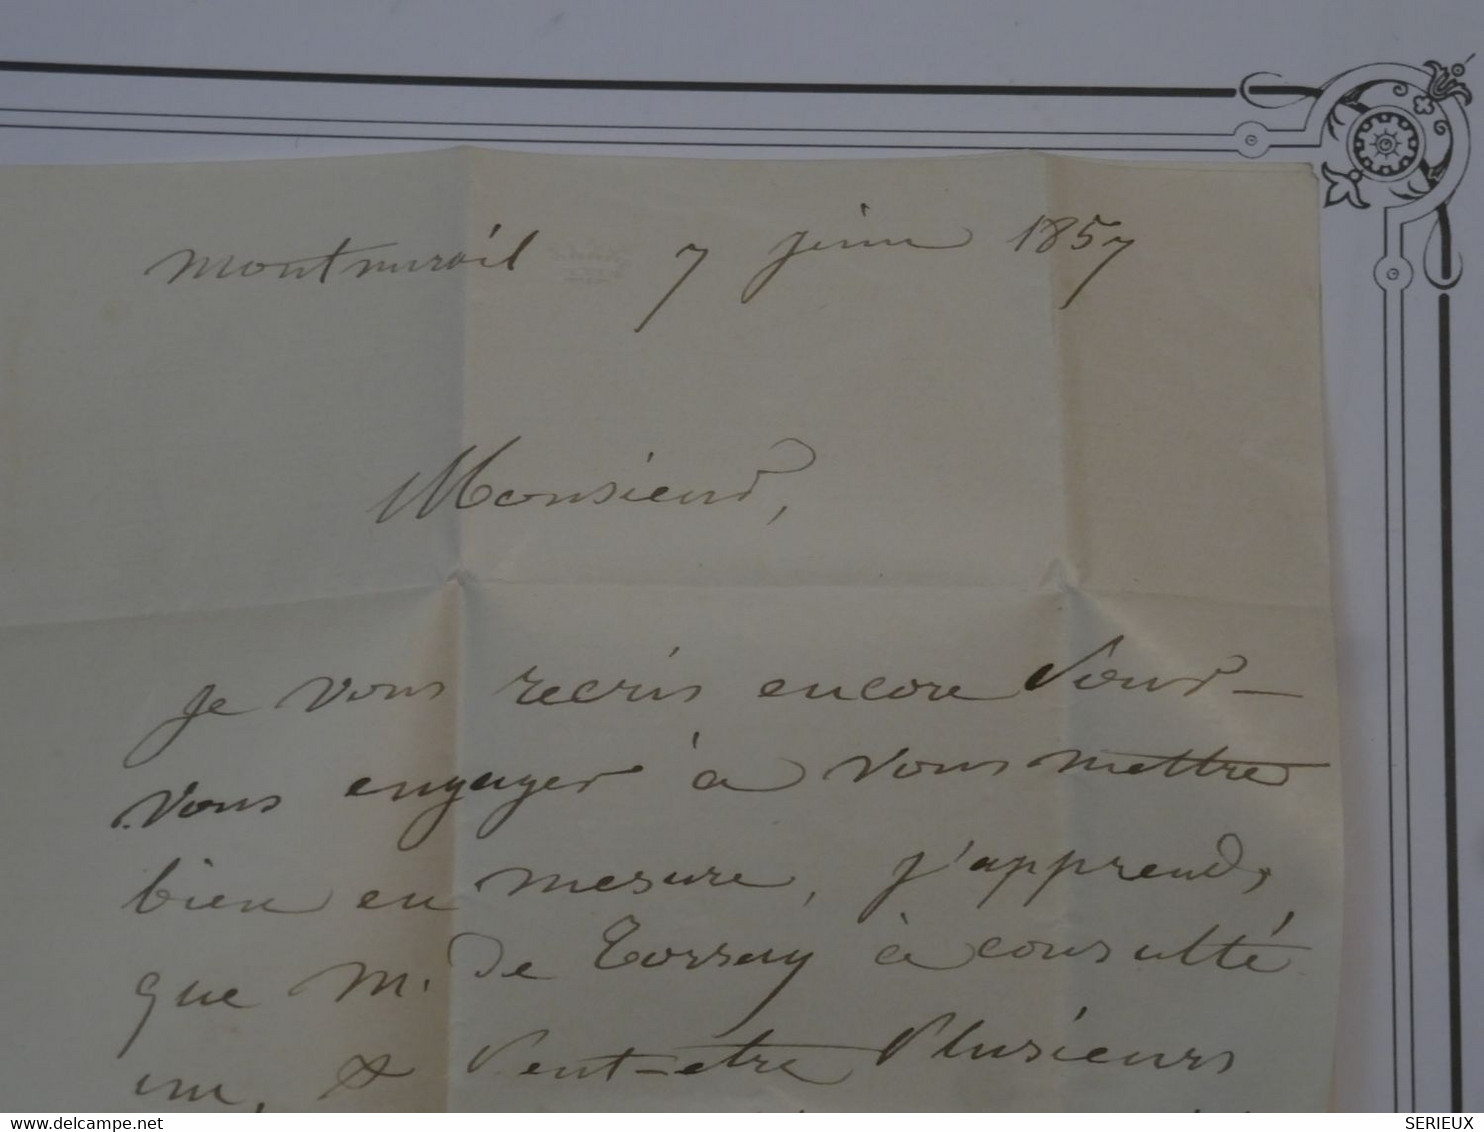 Montmirail 7 juin 1857
Monsieur,
je vous recris encore pour
vous engager à vous mettre
bien en mesure, j'apprends
que M. de Torsay à consulté
un, & peut-etre plusieurs
www.delcampe.net
SERIEUX